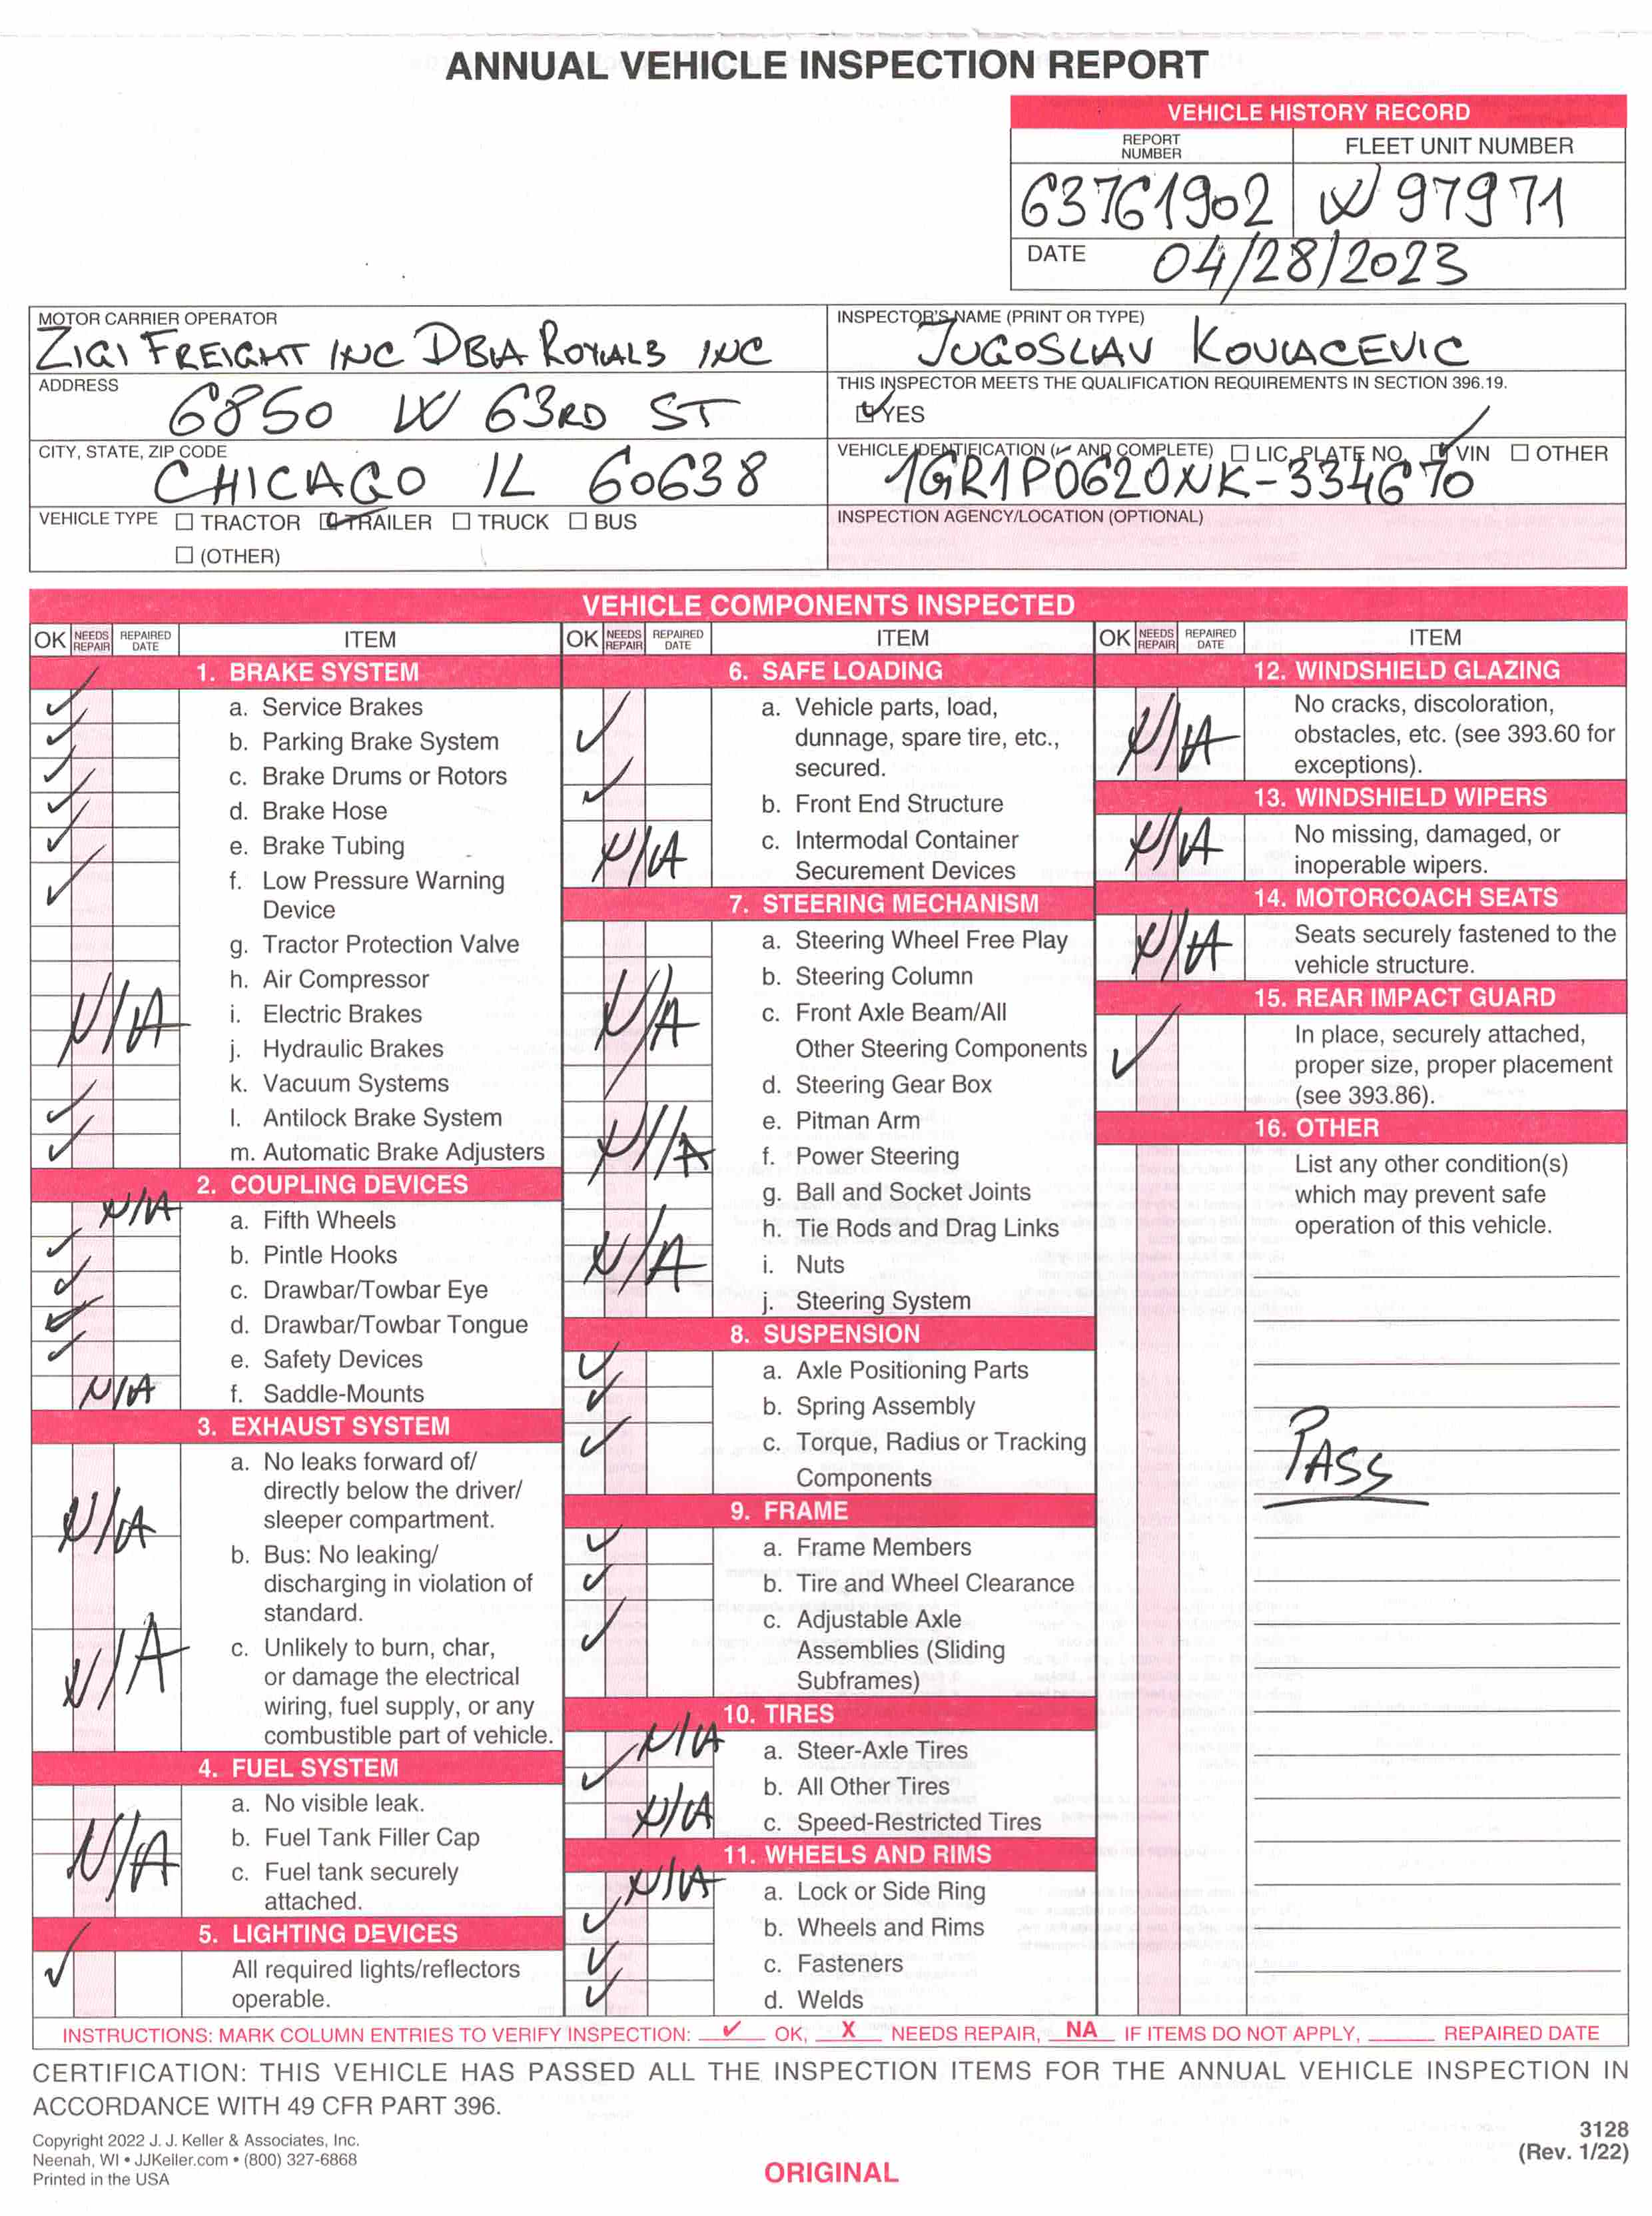 ANNUAL VEHICLE INSPECTION REPORT
VEHICLE HISTORY RECORD
REPORT NUMBER
FLEET UNIT NUMBER
63761902
W 97971
DATE 04/28/2023
MOTOR CARRIER OPERATOR
ZIGI FREIGHT INC DBA ROYAL3 INC
INSPECTOR'S NAME (PRINT OR TYPE)
JUGOSLAV KOVACEVIC
ADDRESS
6850 W 63RD ST
THIS INSPECTOR MEETS THE QUALIFICATION REQUIREMENTS IN SECTION 396.19.
☑ YES
CITY, STATE, ZIP CODE
CHICAGO IL 60638
VEHICLE IDENTIFICATION (✓ AND COMPLETE) ☐ LIC. PLATE NO. ☑ VIN ☐ OTHER
1GR1P0620NK-334670
VEHICLE TYPE ☐ TRACTOR ☑ TRAILER ☐ TRUCK ☐ BUS
☐ (OTHER)
INSPECTION AGENCY/LOCATION (OPTIONAL)
VEHICLE COMPONENTS INSPECTED
OK NEEDS REPAIR REPAIRED DATE ITEM
1. BRAKE SYSTEM
✓ a. Service Brakes
✓ b. Parking Brake System
✓ c. Brake Drums or Rotors
✓ d. Brake Hose
✓ e. Brake Tubing
✓ f. Low Pressure Warning
Device
g. Tractor Protection Valve
h. Air Compressor
N/A i. Electric Brakes
j. Hydraulic Brakes
k. Vacuum Systems
✓ l. Antilock Brake System
✓ m. Automatic Brake Adjusters
2. COUPLING DEVICES
N/A a. Fifth Wheels
✓ b. Pintle Hooks
✓ c. Drawbar/Towbar Eye
✓ d. Drawbar/Towbar Tongue
✓ e. Safety Devices
N/A f. Saddle-Mounts
3. EXHAUST SYSTEM
a. No leaks forward of/
directly below the driver/
N/A sleeper compartment.
b. Bus: No leaking/
discharging in violation of
standard.
N/A c. Unlikely to burn, char,
or damage the electrical
wiring, fuel supply, or any
combustible part of vehicle.
4. FUEL SYSTEM
a. No visible leak.
N/A b. Fuel Tank Filler Cap
c. Fuel tank securely
attached.
5. LIGHTING DEVICES
✓ All required lights/reflectors
operable.
OK NEEDS REPAIR REPAIRED DATE ITEM
6. SAFE LOADING
✓ a. Vehicle parts, load,
dunnage, spare tire, etc.,
secured.
✓ b. Front End Structure
N/A c. Intermodal Container
Securement Devices
7. STEERING MECHANISM
a. Steering Wheel Free Play
b. Steering Column
N/A c. Front Axle Beam/All
Other Steering Components
d. Steering Gear Box
e. Pitman Arm
N/A f. Power Steering
g. Ball and Socket Joints
h. Tie Rods and Drag Links
N/A i. Nuts
j. Steering System
8. SUSPENSION
✓ a. Axle Positioning Parts
✓ b. Spring Assembly
✓ c. Torque, Radius or Tracking
Components
9. FRAME
✓ a. Frame Members
✓ b. Tire and Wheel Clearance
✓ c. Adjustable Axle
Assemblies (Sliding
Subframes)
10. TIRES
N/A a. Steer-Axle Tires
✓ b. All Other Tires
N/A c. Speed-Restricted Tires
11. WHEELS AND RIMS
N/A a. Lock or Side Ring
✓ b. Wheels and Rims
✓ c. Fasteners
✓ d. Welds
OK NEEDS REPAIR REPAIRED DATE ITEM
12. WINDSHIELD GLAZING
No cracks, discoloration,
N/A obstacles, etc. (see 393.60 for
exceptions).
13. WINDSHIELD WIPERS
N/A No missing, damaged, or
inoperable wipers.
14. MOTORCOACH SEATS
N/A Seats securely fastened to the
vehicle structure.
15. REAR IMPACT GUARD
✓ In place, securely attached,
proper size, proper placement
(see 393.86).
16. OTHER
List any other condition(s)
which may prevent safe
operation of this vehicle.
PASS
INSTRUCTIONS: MARK COLUMN ENTRIES TO VERIFY INSPECTION: ✓ OK, X NEEDS REPAIR, NA IF ITEMS DO NOT APPLY, ____ REPAIRED DATE
CERTIFICATION: THIS VEHICLE HAS PASSED ALL THE INSPECTION ITEMS FOR THE ANNUAL VEHICLE INSPECTION IN
ACCORDANCE WITH 49 CFR PART 396.
Copyright 2022 J. J. Keller & Associates, Inc.
Neenah, WI • JJKeller.com • (800) 327-6868
Printed in the USA
ORIGINAL
3128
(Rev. 1/22)